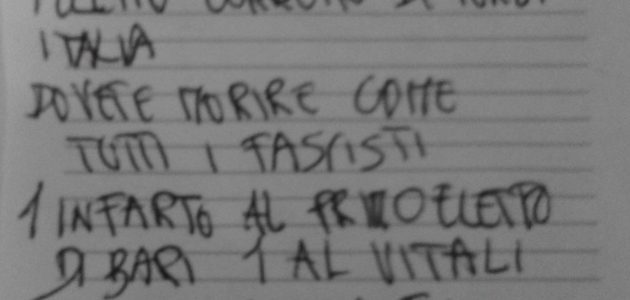 ITALIA
DOVETE MORIRE COME
TUTTI I FASCISTI
1 INFARTO AL PRIMO ELETTO
DI BARI 1 AL VITALI